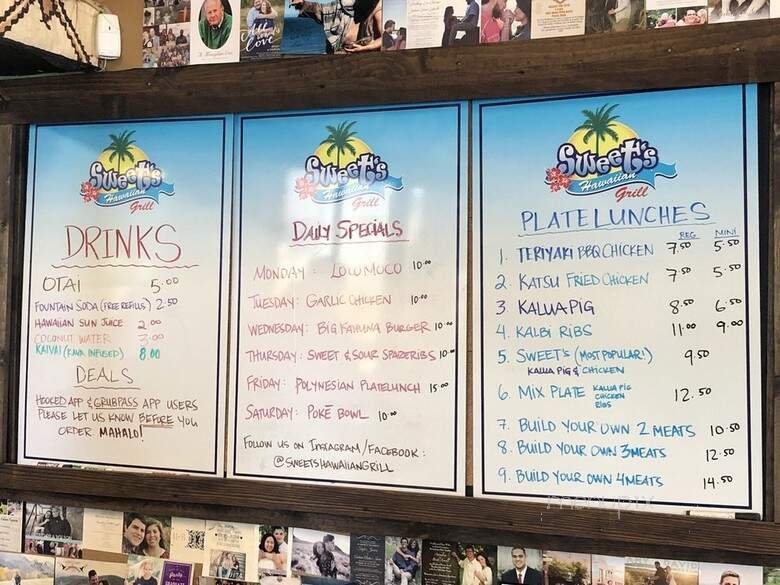 Sweet's
Hawaiian
Grill
DRINKS
OTAI 5.00
FOUNTAIN SODA (FREE REFILLS) 2.50
HAWAIIAN SUN JUICE 2.00
COCONUT WATER 3.00
KAIVAI (KAVA INFUSED) 8.00
DEALS
HOOKED APP & GRUBPASS APP USERS
PLEASE LET US KNOW BEFORE YOU
ORDER. MAHALO!
Sweet's
Hawaiian
Grill
DAILY SPECIALS
MONDAY: LOCO MOCO 10.00
TUESDAY: GARLIC CHICKEN 10.00
WEDNESDAY: BIG KAHUNA BURGER 10.00
THURSDAY: SWEET & SOUR SPARERIBS 10.00
FRIDAY: POLYNESIAN PLATELUNCH 15.00
SATURDAY: POKÉ BOWL 10.00
FOLLOW US ON INSTAGRAM/FACEBOOK:
@SWEETSHAWAIIANGRILL
Sweet's
Hawaiian
Grill
PLATE LUNCHES
REG MINI
1. TERIYAKI BBQ CHICKEN 7.50 5.50
2. KATSU FRIED CHICKEN 7.50 5.50
3. KALUA PIG 8.50 6.50
4. KALBI RIBS 11.00 9.00
5. SWEET'S (MOST POPULAR!) 9.50
KALUA PIG & CHICKEN
6. MIX PLATE KALUA PIG CHICKEN RIBS 12.50
7. BUILD YOUR OWN 2 MEATS 10.50
8. BUILD YOUR OWN 3 MEATS 12.50
9. BUILD YOUR OWN 4 MEATS 14.50